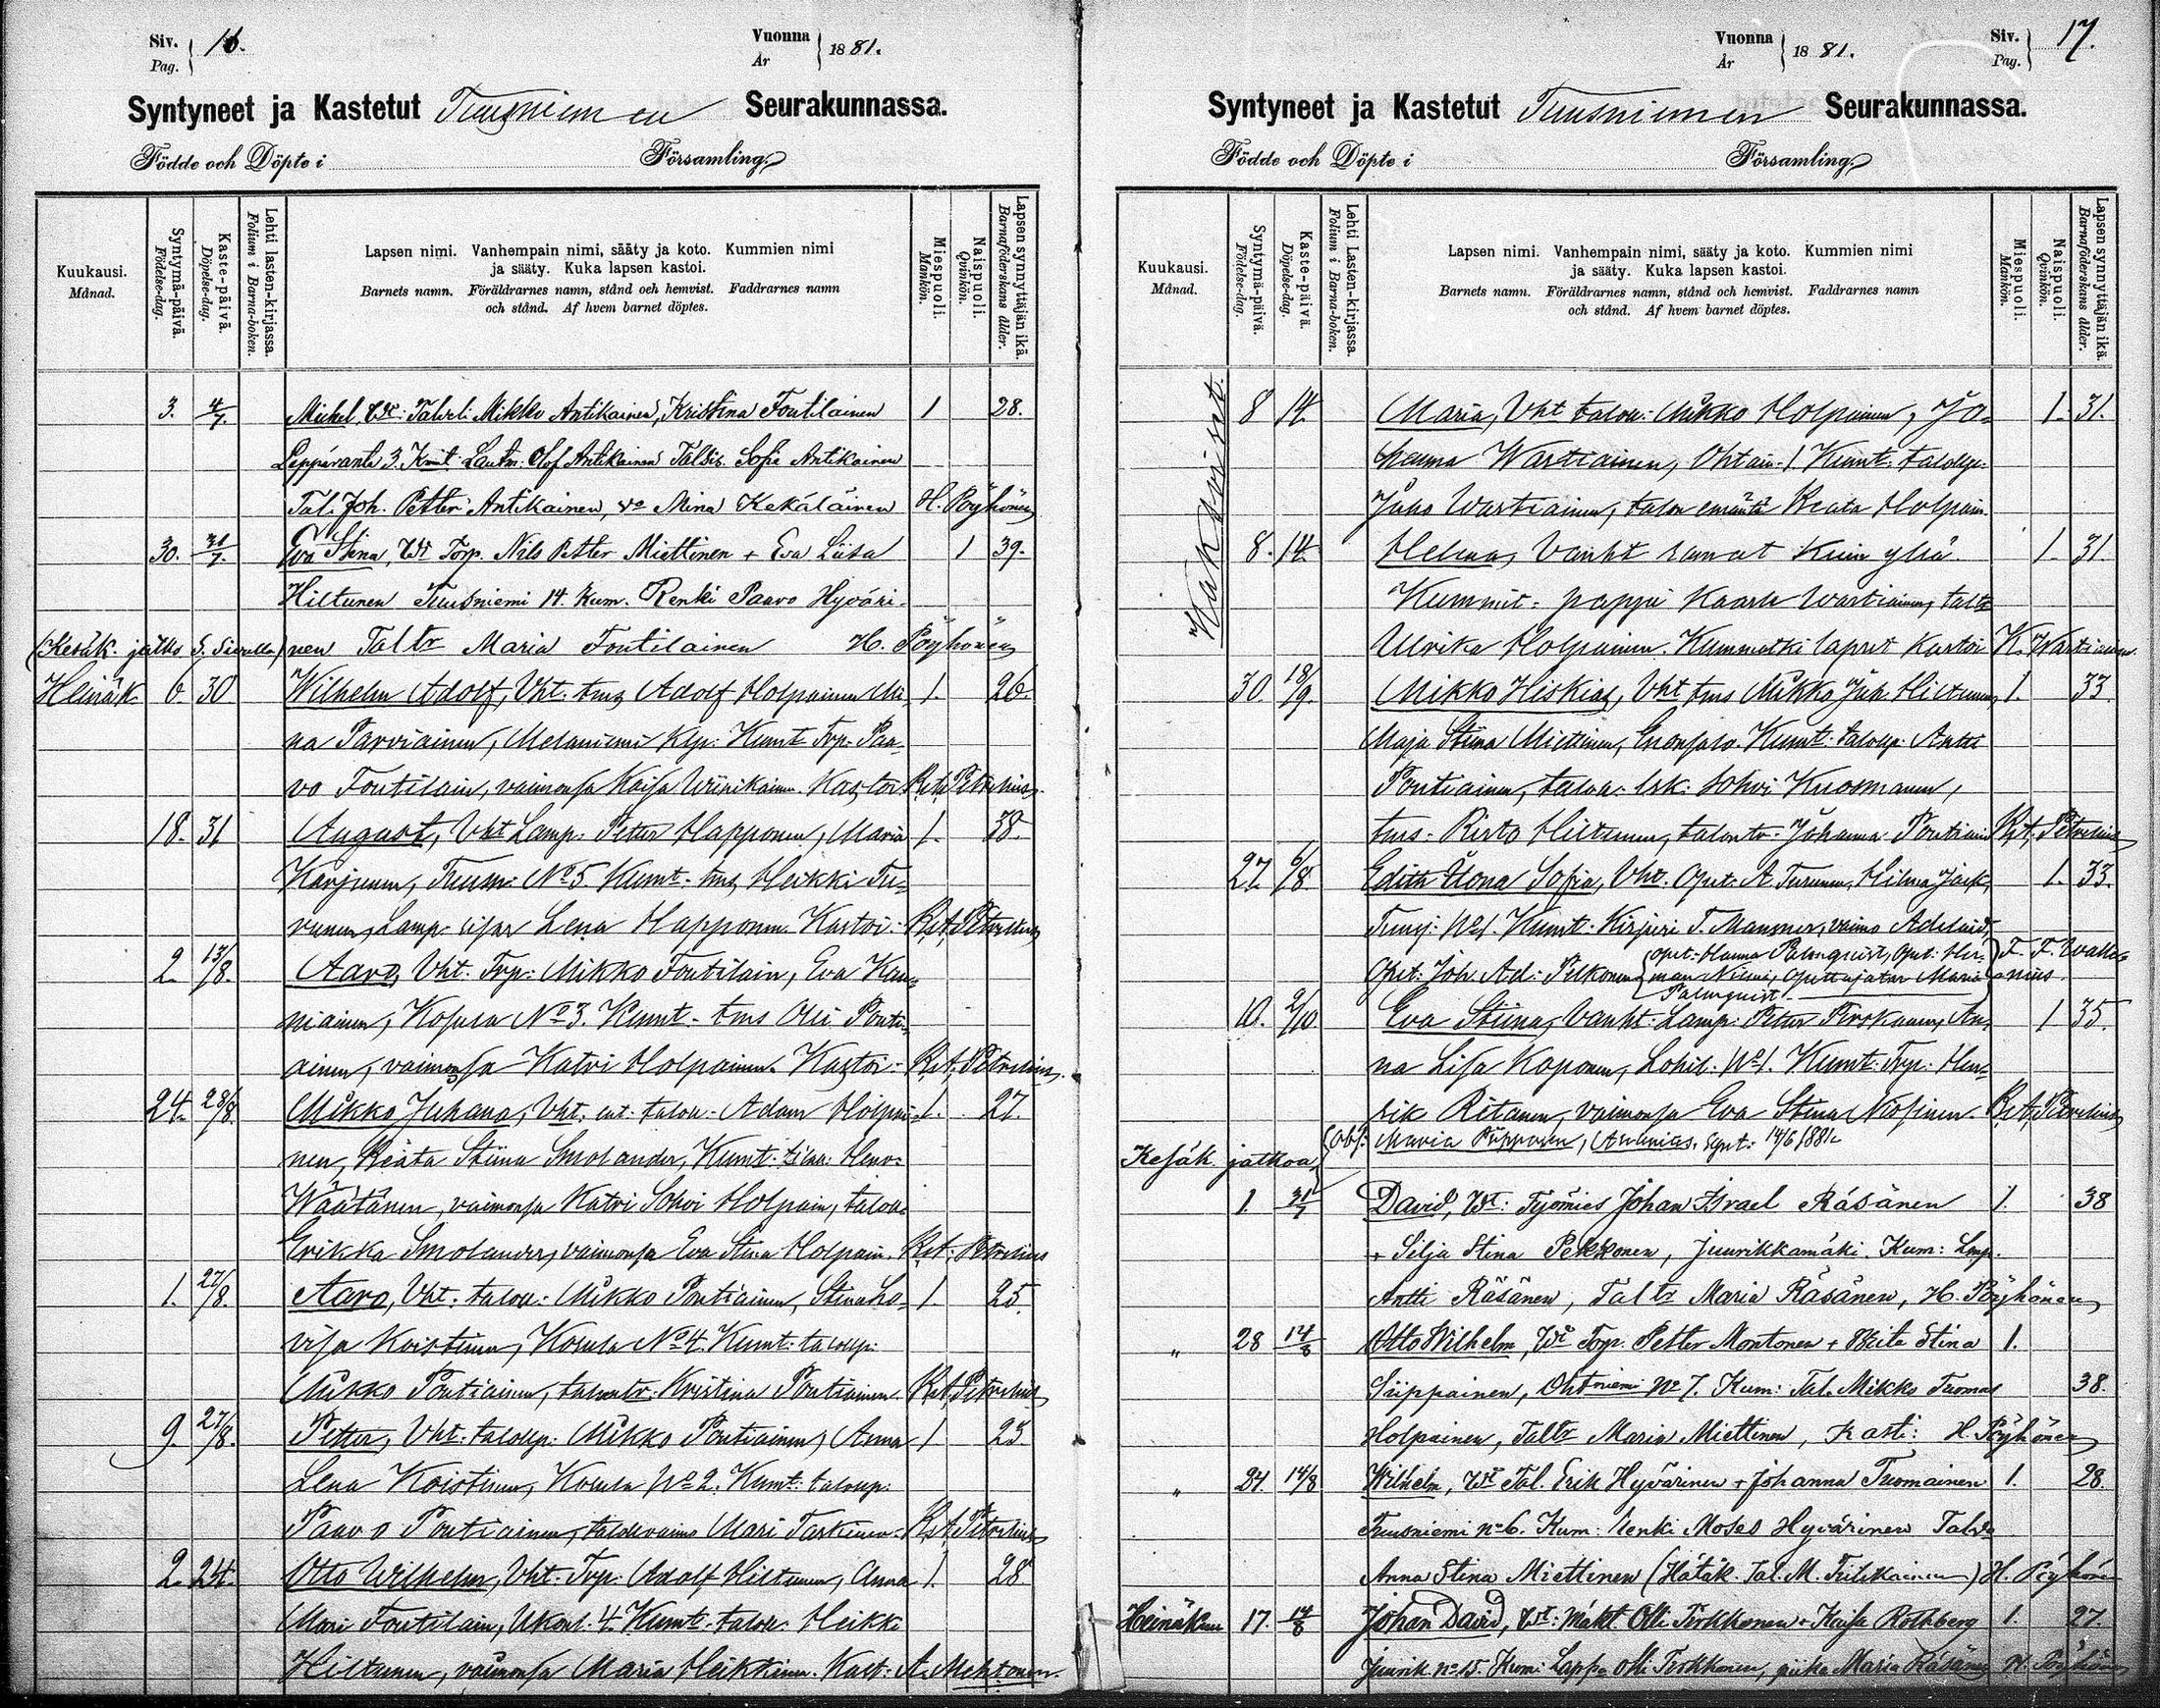 Siv. Pag. 16.
Vuonna År 1881.
Syntyneet ja Kastetut Tuusniemen Seurakunnassa.
Födde och Döpte i Församling.
Kuukausi. Månad.
Syntymä-päivä. Födelse-dag.
Kaste-päivä. Döpelse-dag.
Lehti lasten-kirjassa. Folium i Barna-boken.
Lapsen nimi. Vanhempain nimi, sääty ja koto. Kummien nimi
ja sääty. Kuka lapsen kastoi.
Barnets namn. Föräldrarnes namn, stånd och hemvist. Faddrarnes namn
och stånd. Af hvem barnet döptes.
Miespuoli. Mankön.
Naispuoli. Qvinkön.
Lapsen synnyttäjän ikä. Barnaföderskans ålder.
3. 4/7. Michel, Mikko Antikainen, Kristina Tontilainen 1 28.
Leppäranta 3. Olof Antikainen Sofia Antikainen
Tal. Joh. Petter Antikainen, Mina Kekäläinen H. Pöyhönen
30. 31/7. Eva Stina, Torp. Nils Petter Miettinen + Eva Liisa 1 39.
Hiltunen Tuusniemi 14. Kum. Renki Paavo Hyväri-
(Kesäk. jatko S. Sivulla) nen Taltr Maria Tontilainen H. Pöyhönen
Heinäk. 6. 30. Wilhelm Adolf, Vht. tms Adolf Holpainen Mi- 1. 26.
na Parviainen, Kumt Trp: Paa-
vo Tontilain, vaimonsa Kaisa Wiinikainen. Kastoi R:st: Petrelius
18. 31 August, Vht Lamp: Petter Happonen, Maria 1. 38.
Karjunen, Tuusn: No 5. Kumt. tms Heikki Tu-
runen, Lamp: sisar Lena Happonen. Kastoi: R:st: Petrelius
2. 13/8. Aaro, Vht. Trp: Mikko Tontilain, Eva Kau-
niainen, Kosula No 3. Kumt. tms Olli Ponti-
ainen, vaimonsa Katri Holpainen. Kastoi: R:st: Petrelius.
24. 28/8. Mikko Juhana, Vht. ent. talon. Adam Holpai- 1. 27.
nen, Beata Stiina Smolander, Kumt. Hen-
Väätänen, vaimonsa Katri Sohvi Holpain, talon.
Erikka Smolander, vaimonsa Eva Stina Holpain. R:st: Petrelius
1. 27/8. Aaro, Vht. talon: Mikko Pontiainen, Stina Lo- 1. 25.
visa Koistinen, Kosula No 4. Kumt: talollp:
Mikko Pontiainen, talontr. Kristina Pontiainen. R:st: Petrelius
9. 27/8. Petter, Vht. talollp: Mikko Pontiainen, Anna 1 25.
Lena Koistinen, Kosula No 2. Kumt: talollp:
Paavo Pontiainen, Mari Tarkinen. R:st: Petrelius
2. 24. Otto Wilhelm, Vht. Trp. Adolf Hiltunen, Anna 1. 28.
Mari Tontilain, 4. Kumt: talon. Heikki
Hiltunen, vaimonsa Maria Heikkinen. Kast: A. Mehtonen.
Vuonna År 1881.
Siv. Pag. 17.
Syntyneet ja Kastetut Tuusniemen Seurakunnassa.
Födde och Döpte i Församling.
Kuukausi. Månad.
Syntymä-päivä. Födelse-dag.
Kaste-päivä. Döpelse-dag.
Lehti Lasten-kirjassa. Folium i Barna-boken.
Lapsen nimi. Vanhempain nimi, sääty ja koto. Kummien nimi
ja sääty. Kuka lapsen kastoi.
Barnets namn. Föräldrarnes namn, stånd och hemvist. Faddrarnes namn
och stånd. Af hvem barnet döptes.
Miespuoli. Mankön.
Naispuoli. Qvinkön.
Lapsen synnyttäjän ikä. Barnaföderskans ålder.
Kaksoiset.
8 14. Maria, Vht talon: Mikko Holpainen, Jo- 1. 31.
hanna Wartiainen, 1 Kumt:
Juho Wartiainen, talon emäntä Beata Holpain.
8. 14. Helena, Vanht samat kuin yllä. 1. 31
Kummit: pappi Kaarle Wartiainen,
Ulrika Holpainen. Kummatki lapset kastoi K. Wartiainen.
30. 18/9. Mikko Hiskias, Vht tms Mikko Juh. Hiltunen, 1. 33.
Maja Stina Miettinen, Enonsalo. Kumt: talollp: Antti
Pontiainen, talon: lsk: Sohvi Knosmanen,
tms: Risto Hiltunen, talontr: Johanna Pontiain R:st: Petrelius
27. 6/8. Edith Ilona Sofia, Vht. Opet: A. Turunen, Hilma 1. 33.
No 1. Kumt: Kirjuri T. Manner, vaimo Adelaid,
Opet: Joh. Ad: Pelkonen Opet: Hanna Palmqvist, Opet: Her-
man Opettajatar Maria Palmqvist F. F. Wallenius.
10. 2/10 Eva Stiina, Vanht: Lamp: Petter Pirskanen, An- 1 35.
na Lisa Koponen, Lohil: No 1. Kumt: Trp: Hen-
rik Ritanen, vaimonsa Eva Stina Niskanen. R:st: Petrelius
Kesäk. jatkoa. Maria Pupponen, Synt: 14/6 1881.
1. 31/7 David, Työmies Johan Israel Räsänen 1. 38
+ Silja Stina Pekkonen, Juurikkamäki. Kum: Lmp.
Antti Räsänen, Taltr Maria Räsänen, H. Pöyhönen
" 28 14/8 Otto Wilhelm, Torp. Petter Montonen + Beita Stina 1.
Siippainen, Ohtniemi No 7. Kum: Tal. Mikko Tuomas 38.
Holpainen, Taltr Maria Miettinen, Kasti: H. Pöyhönen
" 24. 14/8 Wilhelm, Tal. Erik Hyvärinen + Johanna Tuomainen 1. 28.
Tuusniemi no 6. Kum: Renki Moses Hyvärinen
Anna Stina Miettinen (Hätäk. Tal. M. Tiilikainen) H. Pöyhönen
Heinäkuu 17. 14/8 Johan David, Mäkt. Olli Tirkkonen + Kaisa Rothberg 1. 27.
Juurik. no 15. Kumi Lappa Olli Tirkkonen, piika Maria Räsänen H. Pöyhönen